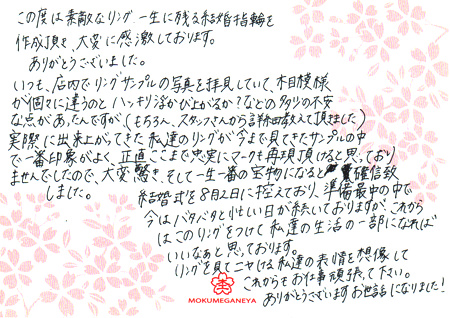 この度は素敵なリング一生に残る結婚指輪を
作成頂き、大変に感激しております。
ありがとうございました。
いつも、店内でリングサンプルの写真を拝見していて、木目模様
が個々に違うのとハッキリ浮かび上がるか?などの多少の不安
な点があったんですが、(もちろん、スタッフさんから言葉は教えて頂きました)
実際に出来上がってきた私達のリングが今まで見てきたサンプルの中
で一番印象がよく、正直ここまで忠実にマークも再現頂けると思っており
ませんでしたので、大変驚き、そして一生一番の宝物になると確信致
しました。
結婚式を8月2日に控えており、準備最中の中で
今はバタバタと忙しい日が続いておりますが、これから
はこのリングをつけて私達の生活の一部になれば
いいなぁと思っております。
リングを見てニヤける私達の表情を想像して
これからもお仕事頑張て下さい。
ありがとうございますお世話になりました!
MOKUMEGANEYA